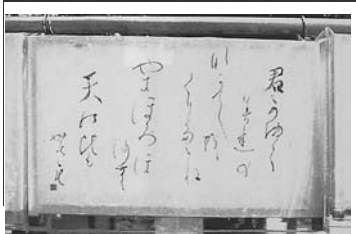 君かゆく
道の
なかてを
くりたゝね
やきほろほ
さむ
天の火も